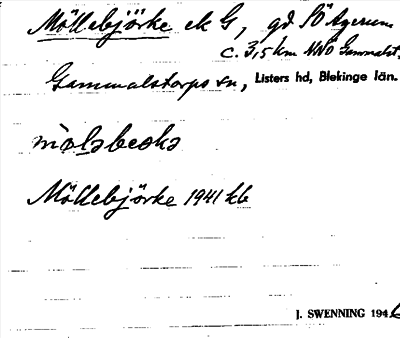 Möllebjörke ek G, gd SÖ Agerum
c. 3,5 km NNÖ Gammalst.
Gammalstorps sn, Listers hd, Blekinge län.
Möllebjörke 1941 kb
J. SWENNING 194